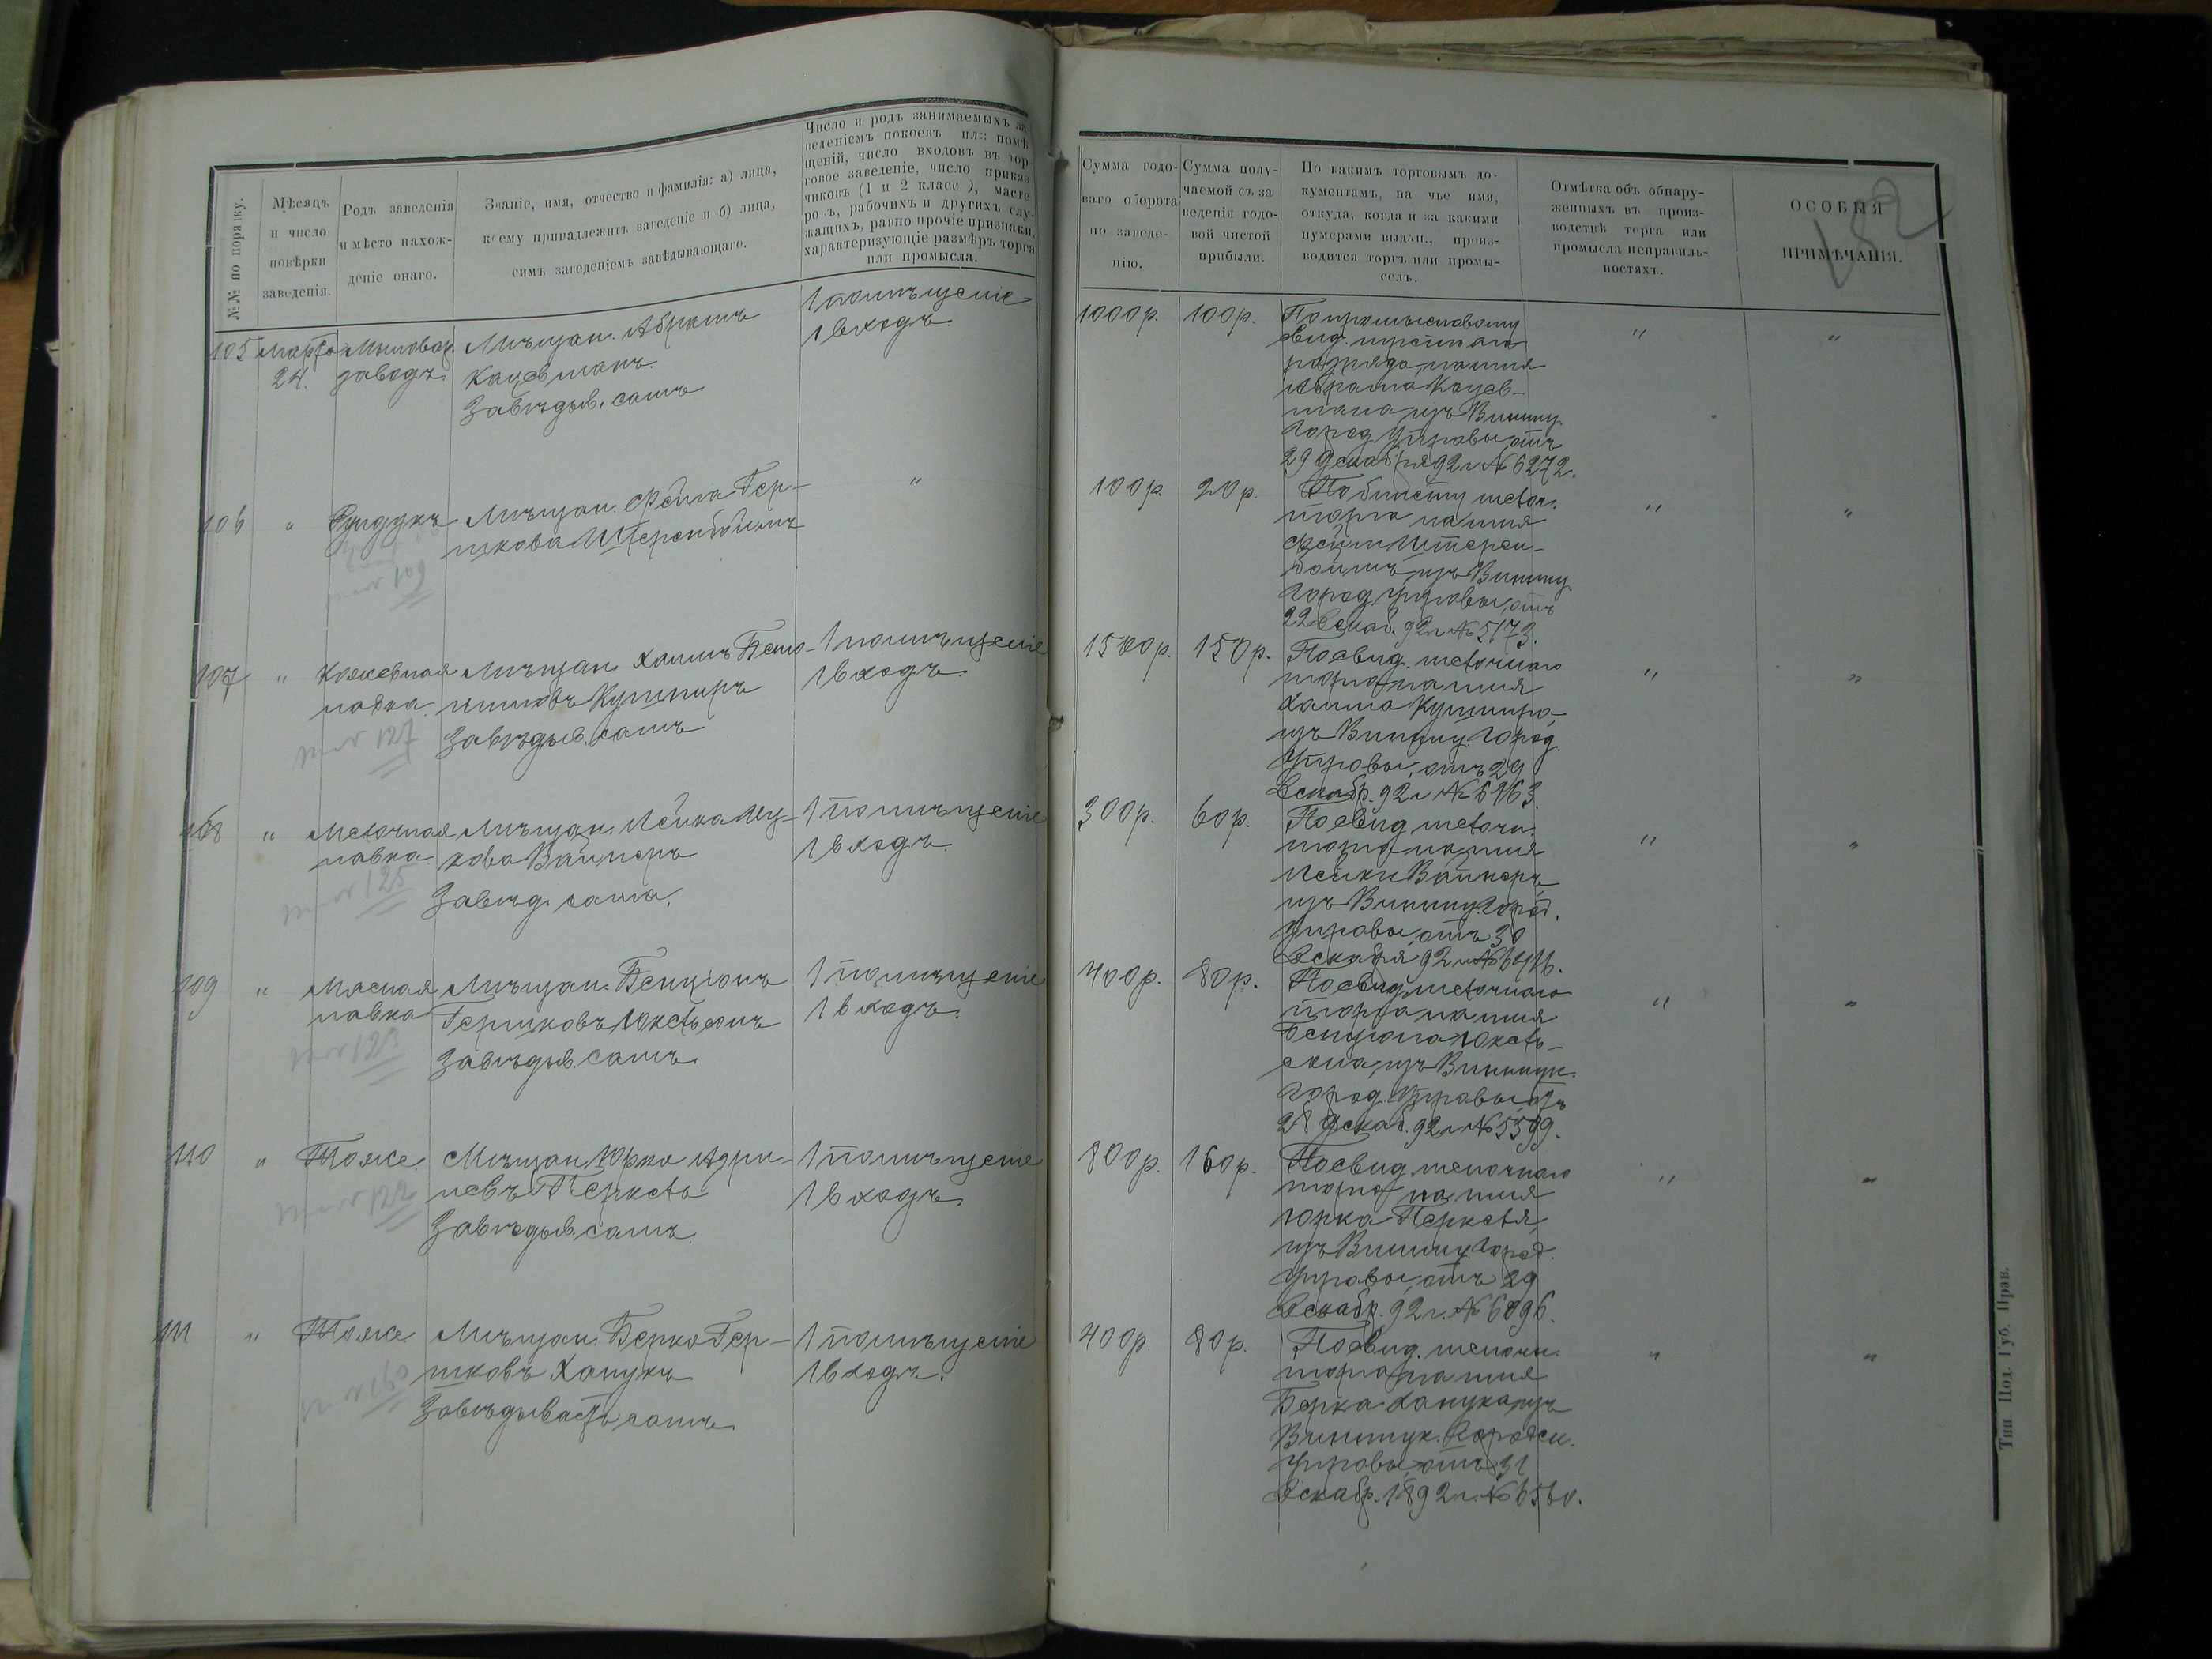 №№ по порядку.
Мѣсяцъ
и число
повѣрки
заведенія.
Родъ заведенія
и мѣсто нахож-
деніе онаго.
Званіе, имя, отчество и фамилія: а) лица,
коему принадлежитъ заведеніе и б) лица,
симъ заведеніемъ завѣдывающаго.
Число и родъ занимаемыхъ за-
веденіемъ покоевъ или помѣ-
щеній, число входовъ въ тор-
говое заведеніе, число приказ
чиковъ (1 и 2 класс ), масте
ровъ, рабочихъ и другихъ слу-
жащихъ, равно прочіе признаки,
характеризующіе размѣръ торга
или промысла.
Сумма годо-
ваго оборота
по заведе-
нію.
Сумма полу-
чаемой съ за
веденія годо-
вой чистой
прибыли.
По какимъ торговымъ до-
кументамъ, на чье имя,
откуда, когда и за какими
нумерами выдан., произ-
водится торгъ или промы-
селъ.
Отмѣтка объ обнару-
женныхъ въ произ-
водствѣ торга или
промысла неправиль-
ностяхъ.
ОСОБЫЯ
ПРИМѢЧАНІЯ.
105
Марта
24.
Мыловар.
заводъ
Мѣщан. Абрамъ
Кацевманъ.
Завѣдыв. самъ
1 помѣщеніе
1 входъ.
1000р.
100р.
По промысловому
свид.
разряда, на имя
Абрама Кацев-
мана, изъ Винниц.
Город. Управы, отъ
29 декабря 92 г № 6272.
"
"
106
"
Сундукъ
Мѣщан. Фейга Гер-
шкова Штеренбоймъ
"
100р.
20р.
По билету мелоч.
торга на имя
Фейги Штерен-
боймъ, изъ Винниц.
Город. Управы, отъ
22 Декаб. 92 г № 5173.
"
"
109
107
"
Кожевная
лавка
Мѣщан. Хаимъ Беню-
миновъ Кушниръ
Завѣдыв. самъ
1 помѣщеніе
1 входъ.
1500р.
150р.
По свид. мелочнаго
торга на имя
Хаима Кушнира,
изъ Винниц. Город.
Управы, отъ 29
Декабр. 92 г № 6963.
"
"
127
108
"
Мелочная
лавка
Мѣщан. Лейка Иц-
кова Вайнеръ
Завѣд. сама.
1 помѣщеніе
1 входъ.
300р.
60р.
По свид. мелочн.
торга на имя
Лейки Вайнеръ,
изъ Винниц. Город.
Управы, отъ 30
Декабря 92 г №
"
"
125
109
"
Мясная
лавка
Мѣщан. Бенціонъ
Гершковъ
Завѣдыв. самъ.
1 помѣщеніе
1 входъ.
400р.
80р.
По свид. мелочнаго
торга на имя
Бенціона
изъ Винницк.
Город. Управы, отъ
28 декаб. 92 г № 5599.
"
"
123
110
"
Тоже
Мѣщан. Юрко
Завѣдыв. самъ.
1 помѣщеніе
1 входъ.
800р.
160р.
По свид. мелочнаго
торга на имя
Юрка
изъ Винниц. Город.
Управы, отъ 29
Декабр. 92 г. № 6896.
"
"
122
111
"
Тоже
Мѣщан. Берко Гер-
шковъ Ханукъ
Завѣдываетъ самъ.
1 помѣщеніе
1 входъ.
400р.
80р.
По свид. мелочн.
торга на имя
Берка Ханука, изъ
Винницк. Городск.
Управы, отъ 31
Декабр. 1892 г. № 6560.
"
"
Тип. Под. Губ. Прав.